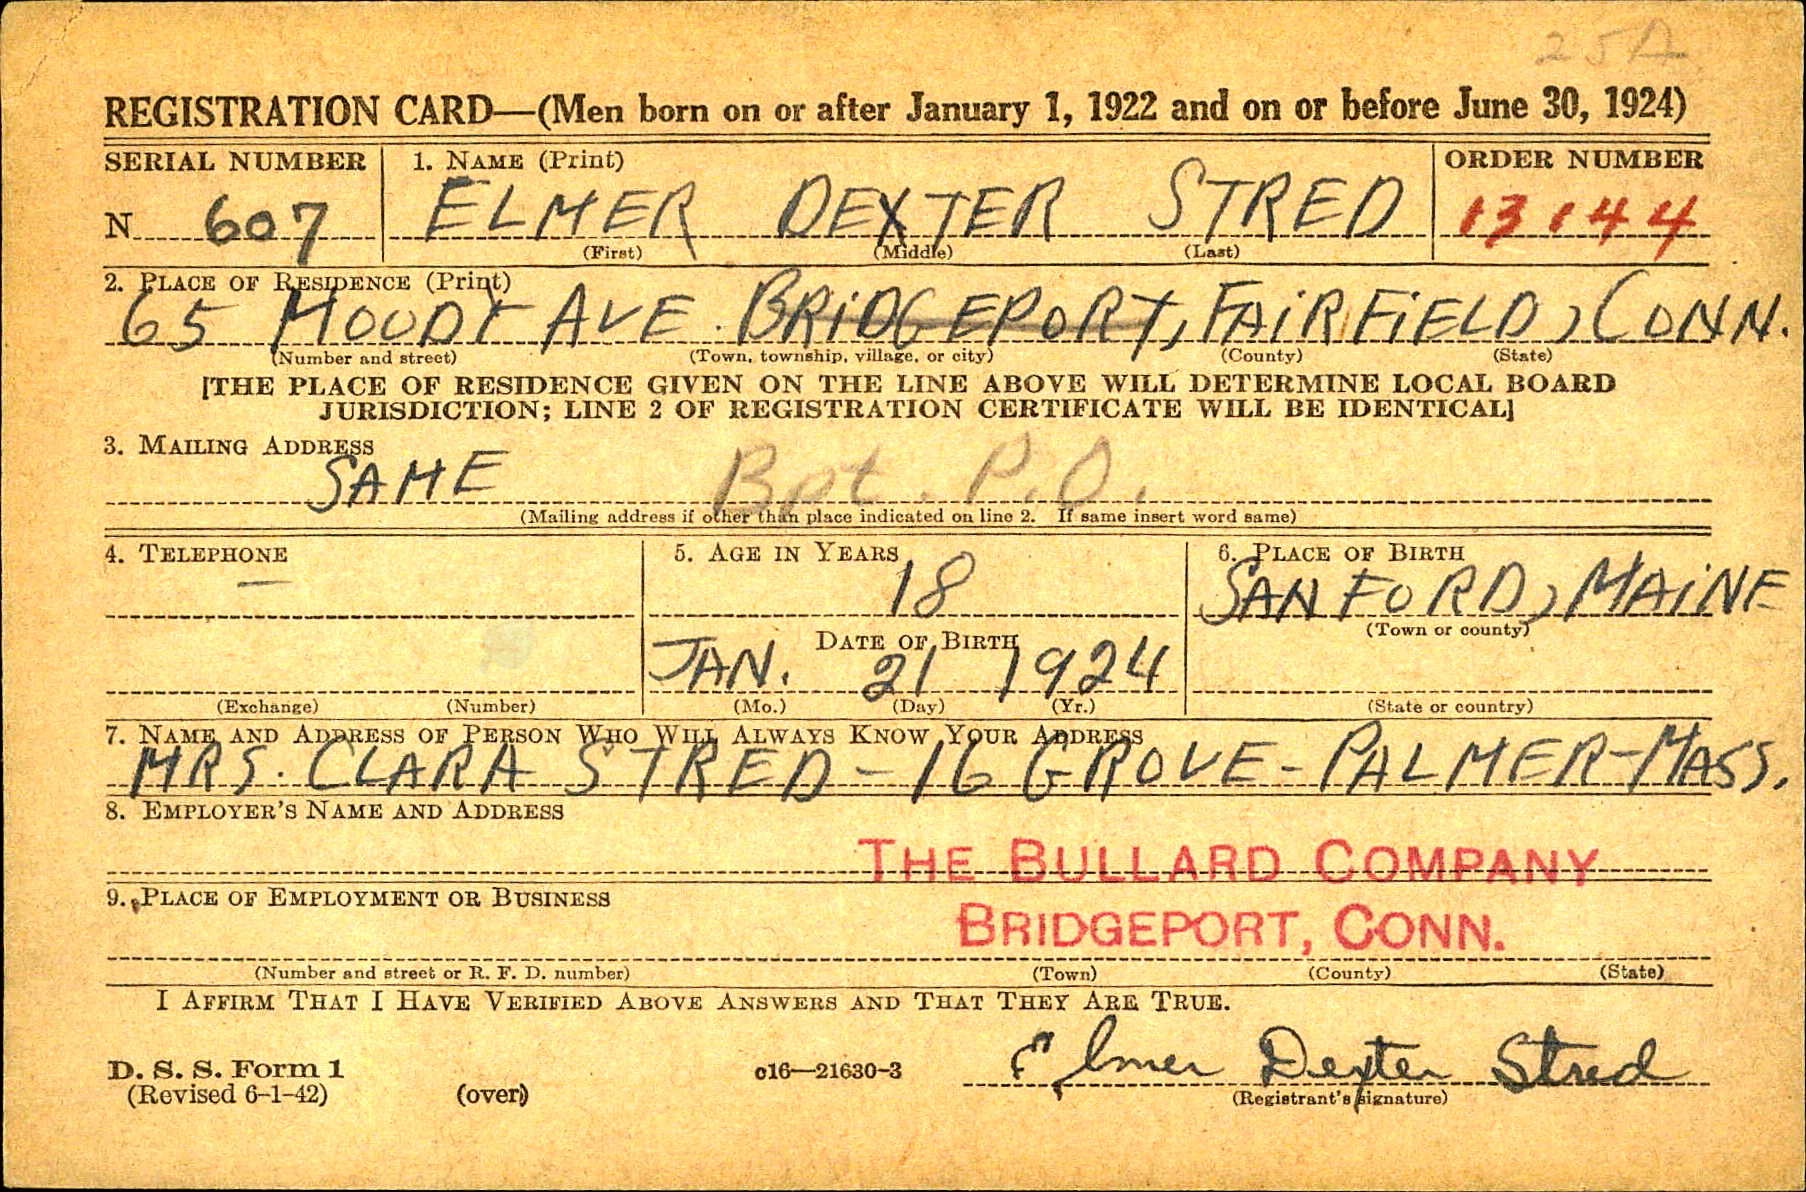 25A
REGISTRATION CARD—(Men born on or after January 1, 1922 and on or before June 30, 1924)
SERIAL NUMBER 1. NAME (Print) ORDER NUMBER
N 607 ELMER DEXTER STRED 13144
(First) (Middle) (Last)
2. PLACE OF RESIDENCE (Print)
65 MOODY AVE. BRIDGEPORT, FAIRFIELD, CONN.
(Number and street) (Town, township, village, or city) (County) (State)
[THE PLACE OF RESIDENCE GIVEN ON THE LINE ABOVE WILL DETERMINE LOCAL BOARD
JURISDICTION; LINE 2 OF REGISTRATION CERTIFICATE WILL BE IDENTICAL]
3. MAILING ADDRESS
SAME Bpt. P.O.
(Mailing address if other than place indicated on line 2. If same insert word same)
4. TELEPHONE 5. AGE IN YEARS 6. PLACE OF BIRTH
— 18 SANFORD, MAINE
DATE OF BIRTH (Town or county)
JAN. 21 1924
(Exchange) (Number) (Mo.) (Day) (Yr.) (State or country)
7. NAME AND ADDRESS OF PERSON WHO WILL ALWAYS KNOW YOUR ADDRESS
MRS. CLARA STRED - 16 GROVE - PALMER - MASS.
8. EMPLOYER'S NAME AND ADDRESS
THE BULLARD COMPANY
9. PLACE OF EMPLOYMENT OR BUSINESS
BRIDGEPORT, CONN.
(Number and street or R. F. D. number) (Town) (County) (State)
I AFFIRM THAT I HAVE VERIFIED ABOVE ANSWERS AND THAT THEY ARE TRUE.
D. S. S. Form 1 c16—21630-3 Elmer Dexter Stred
(Revised 6-1-42) (over) (Registrant's signature)